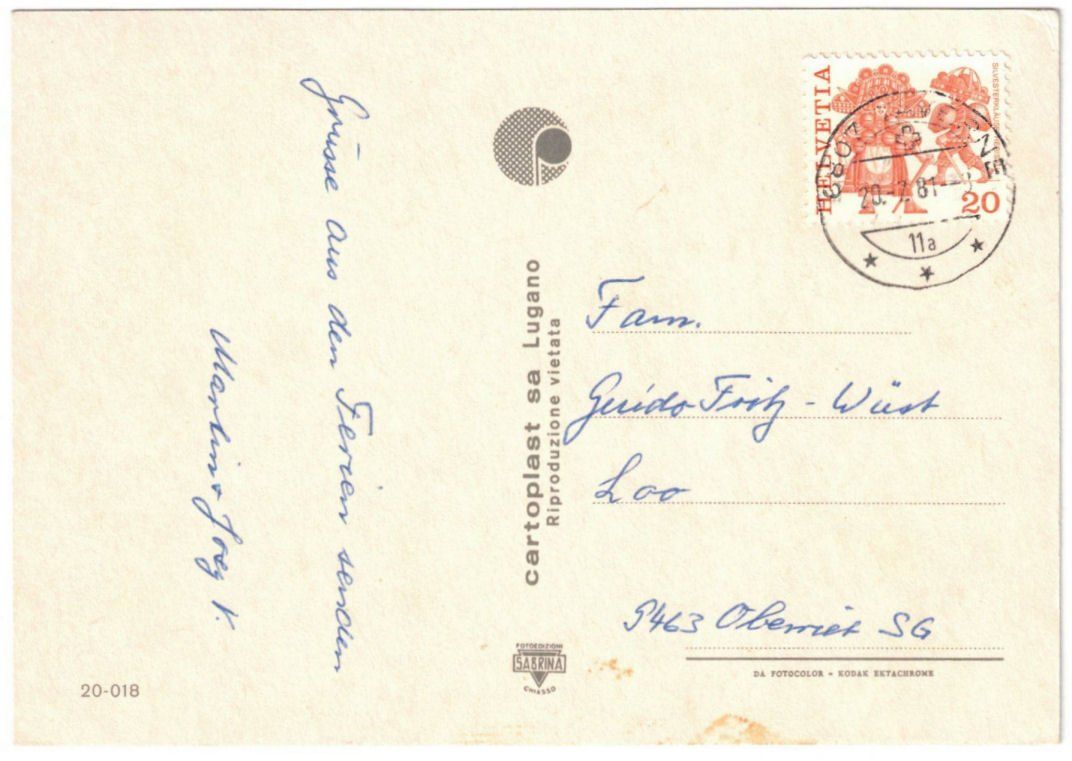 Grüsse aus den Ferien senden
Martin + Joeg V.
20-018
cartoplast sa Lugano
Riproduzione vietata
FOTOEDIZIONI
SABRINA
CHIASSO
HELVETIA
20
20.-7.81--8
11a
Fam.
Guido Fritz - Wüst
Loo
9463 Oberriet SG
DA FOTOCOLOR - KODAK EKTACHROME